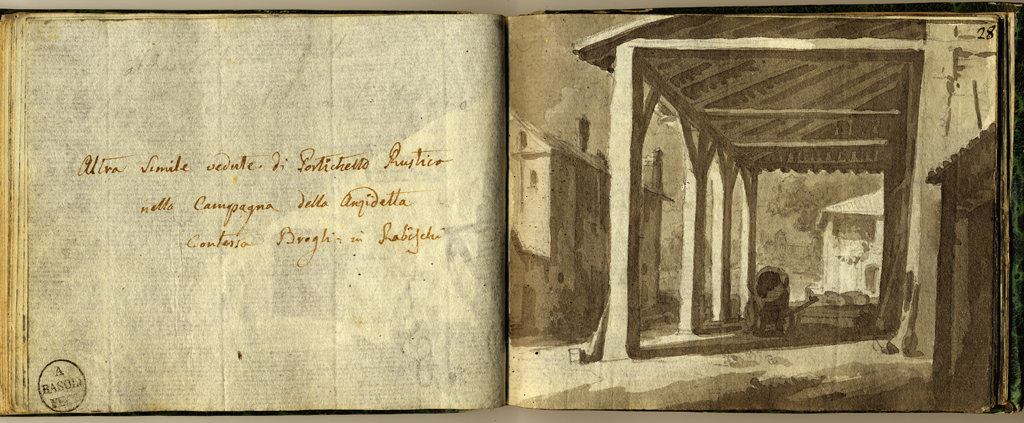 Altra Simile vedute di Portichetto Rustico
nella Campagna della Anzidetta
Contessa Brogli in
A
BASOLI
28